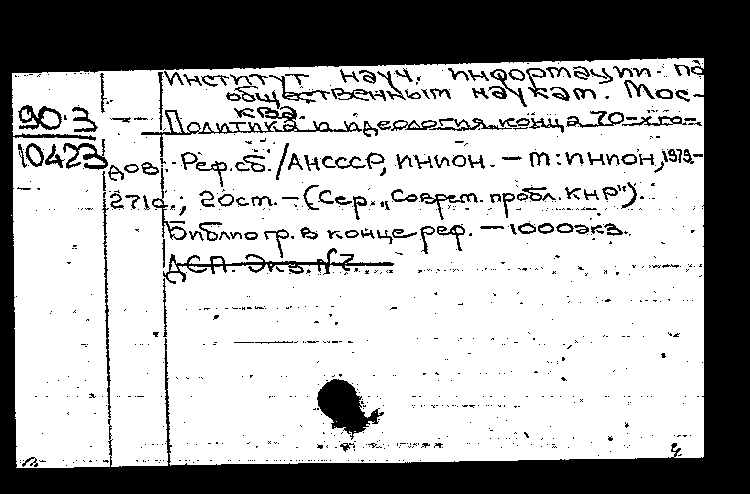 Институт науч. информации по
общественным наукам. Мос-
ква.
90-3
10423
Политика и идеология конца 70-х го-
дов. Реф.сб./АНСССР, ИНИОН. — М: ИНИОН, 1979.-
271с.; 20см. — (Сер. „Соврем. пробл. КНР").
Библиогр. в конце реф. — 1000экз.
ДСП. Экз. №7.